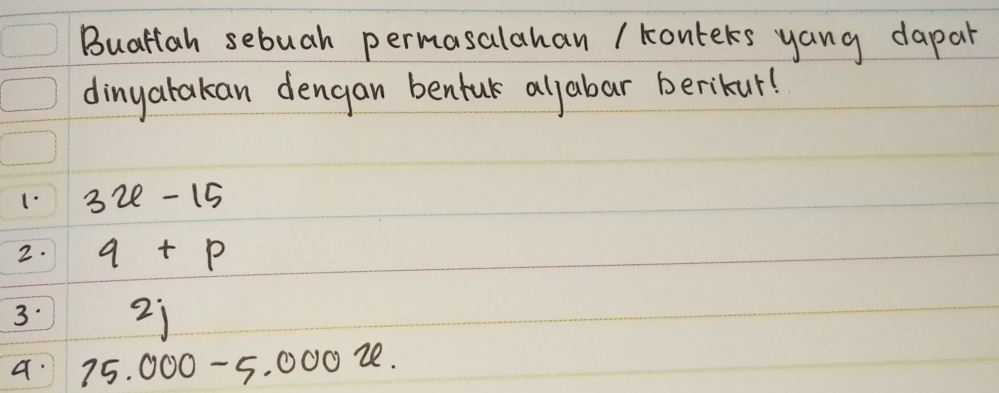 Buatlah sebuah permasalahan / konteks yang dapat
dinyatakan dengan bentuk aljabar berikut!
1. 3x - 15
2. 9 + p
3. 2j
4. 75.000 - 5.000 x.